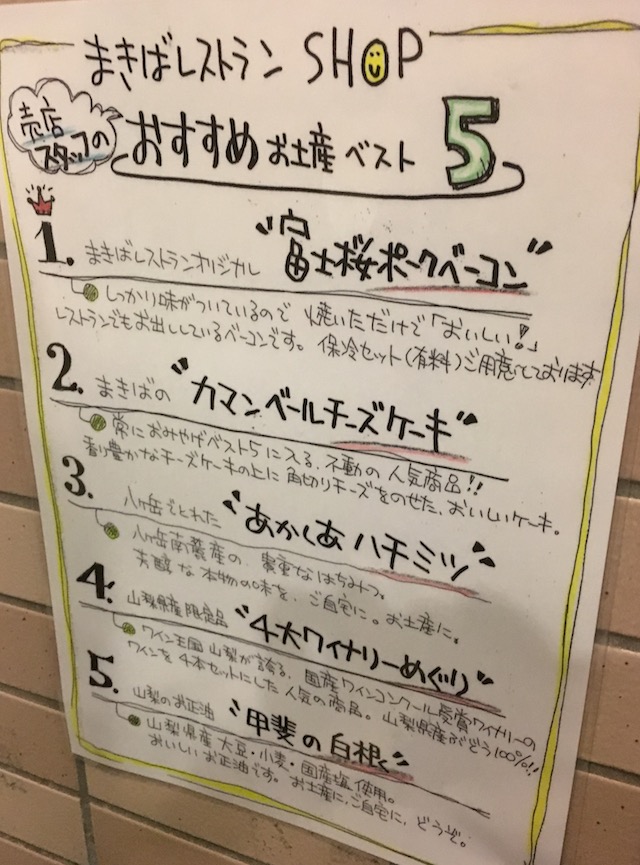 まきばレストラン SHOP
売店
スタッフの
おすすめ お土産 ベスト 5
1. まきばレストランオリジナル "富士桜ポークベーコン"
しっかり味がついているので 焼いただけで「おいしい!」
レストランでもお出ししているベーコンです。 保冷セット(有料)ご用意しております
2. まきばの "カマンベールチーズケーキ"
常におみやげベスト5に入る、不動の人気商品!!
香り豊かなチーズケーキの上に 角切りチーズをのせた、おいしいケーキ。
3. 八ヶ岳でとれた "あかしあ ハチミツ"
八ヶ岳南麓産の、貴重なはちみつ。
芳醇な本物の味を、ご自宅に。お土産に。
4. 山梨県産限定品 "4大ワイナリーめぐり"
ワイン王国 山梨が誇る、国産ワインコンクール受賞ワイナリーの
ワインを4本セットにした人気の商品。山梨県産ぶどう100%!!
5. 山梨のお正油 "甲斐の白根"
山梨県産大豆・小麦・国産塩使用。
おいしいお正油です。お土産に、ご自宅に、どうぞ。